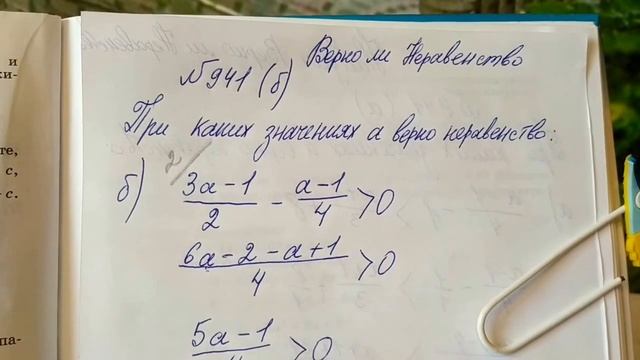 и
ки-
те,
с,
с.
па-
Верно ли Неравенство
№941 (б)
При каких значениях а верно неравенство:
2/
б) (3а-1)/2 - (а-1)/4 > 0
(6а-2-а+1)/4 > 0
(5а-1)/4 > 0